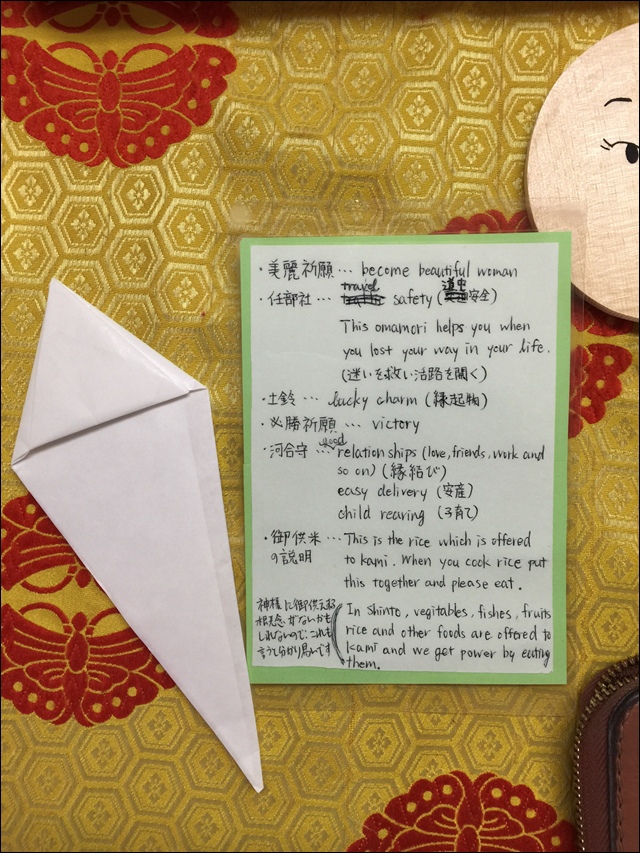 ・美麗祈願… become beautiful woman
・任部社… travel safety (道中安全)
This omamori helps you when
you lost your way in your life.
(迷いを救い活路を開く)
・土鈴… lucky charm (縁起物)
・必勝祈願… victory
・河合守… good relation ships (love, friends, work and
so on) (縁結び)
easy delivery (安産)
child rearing (子育て)
・御供米… This is the rice which is offered
の説明 to kami. When you cook rice put
this together and please eat.
神様に御供える
概念がないかも
しれないので、これを
言うと分かり易いです
In Shinto, vegitables, fishes, fruits
rice and other foods are offered to
kami and we get power by eating
them.